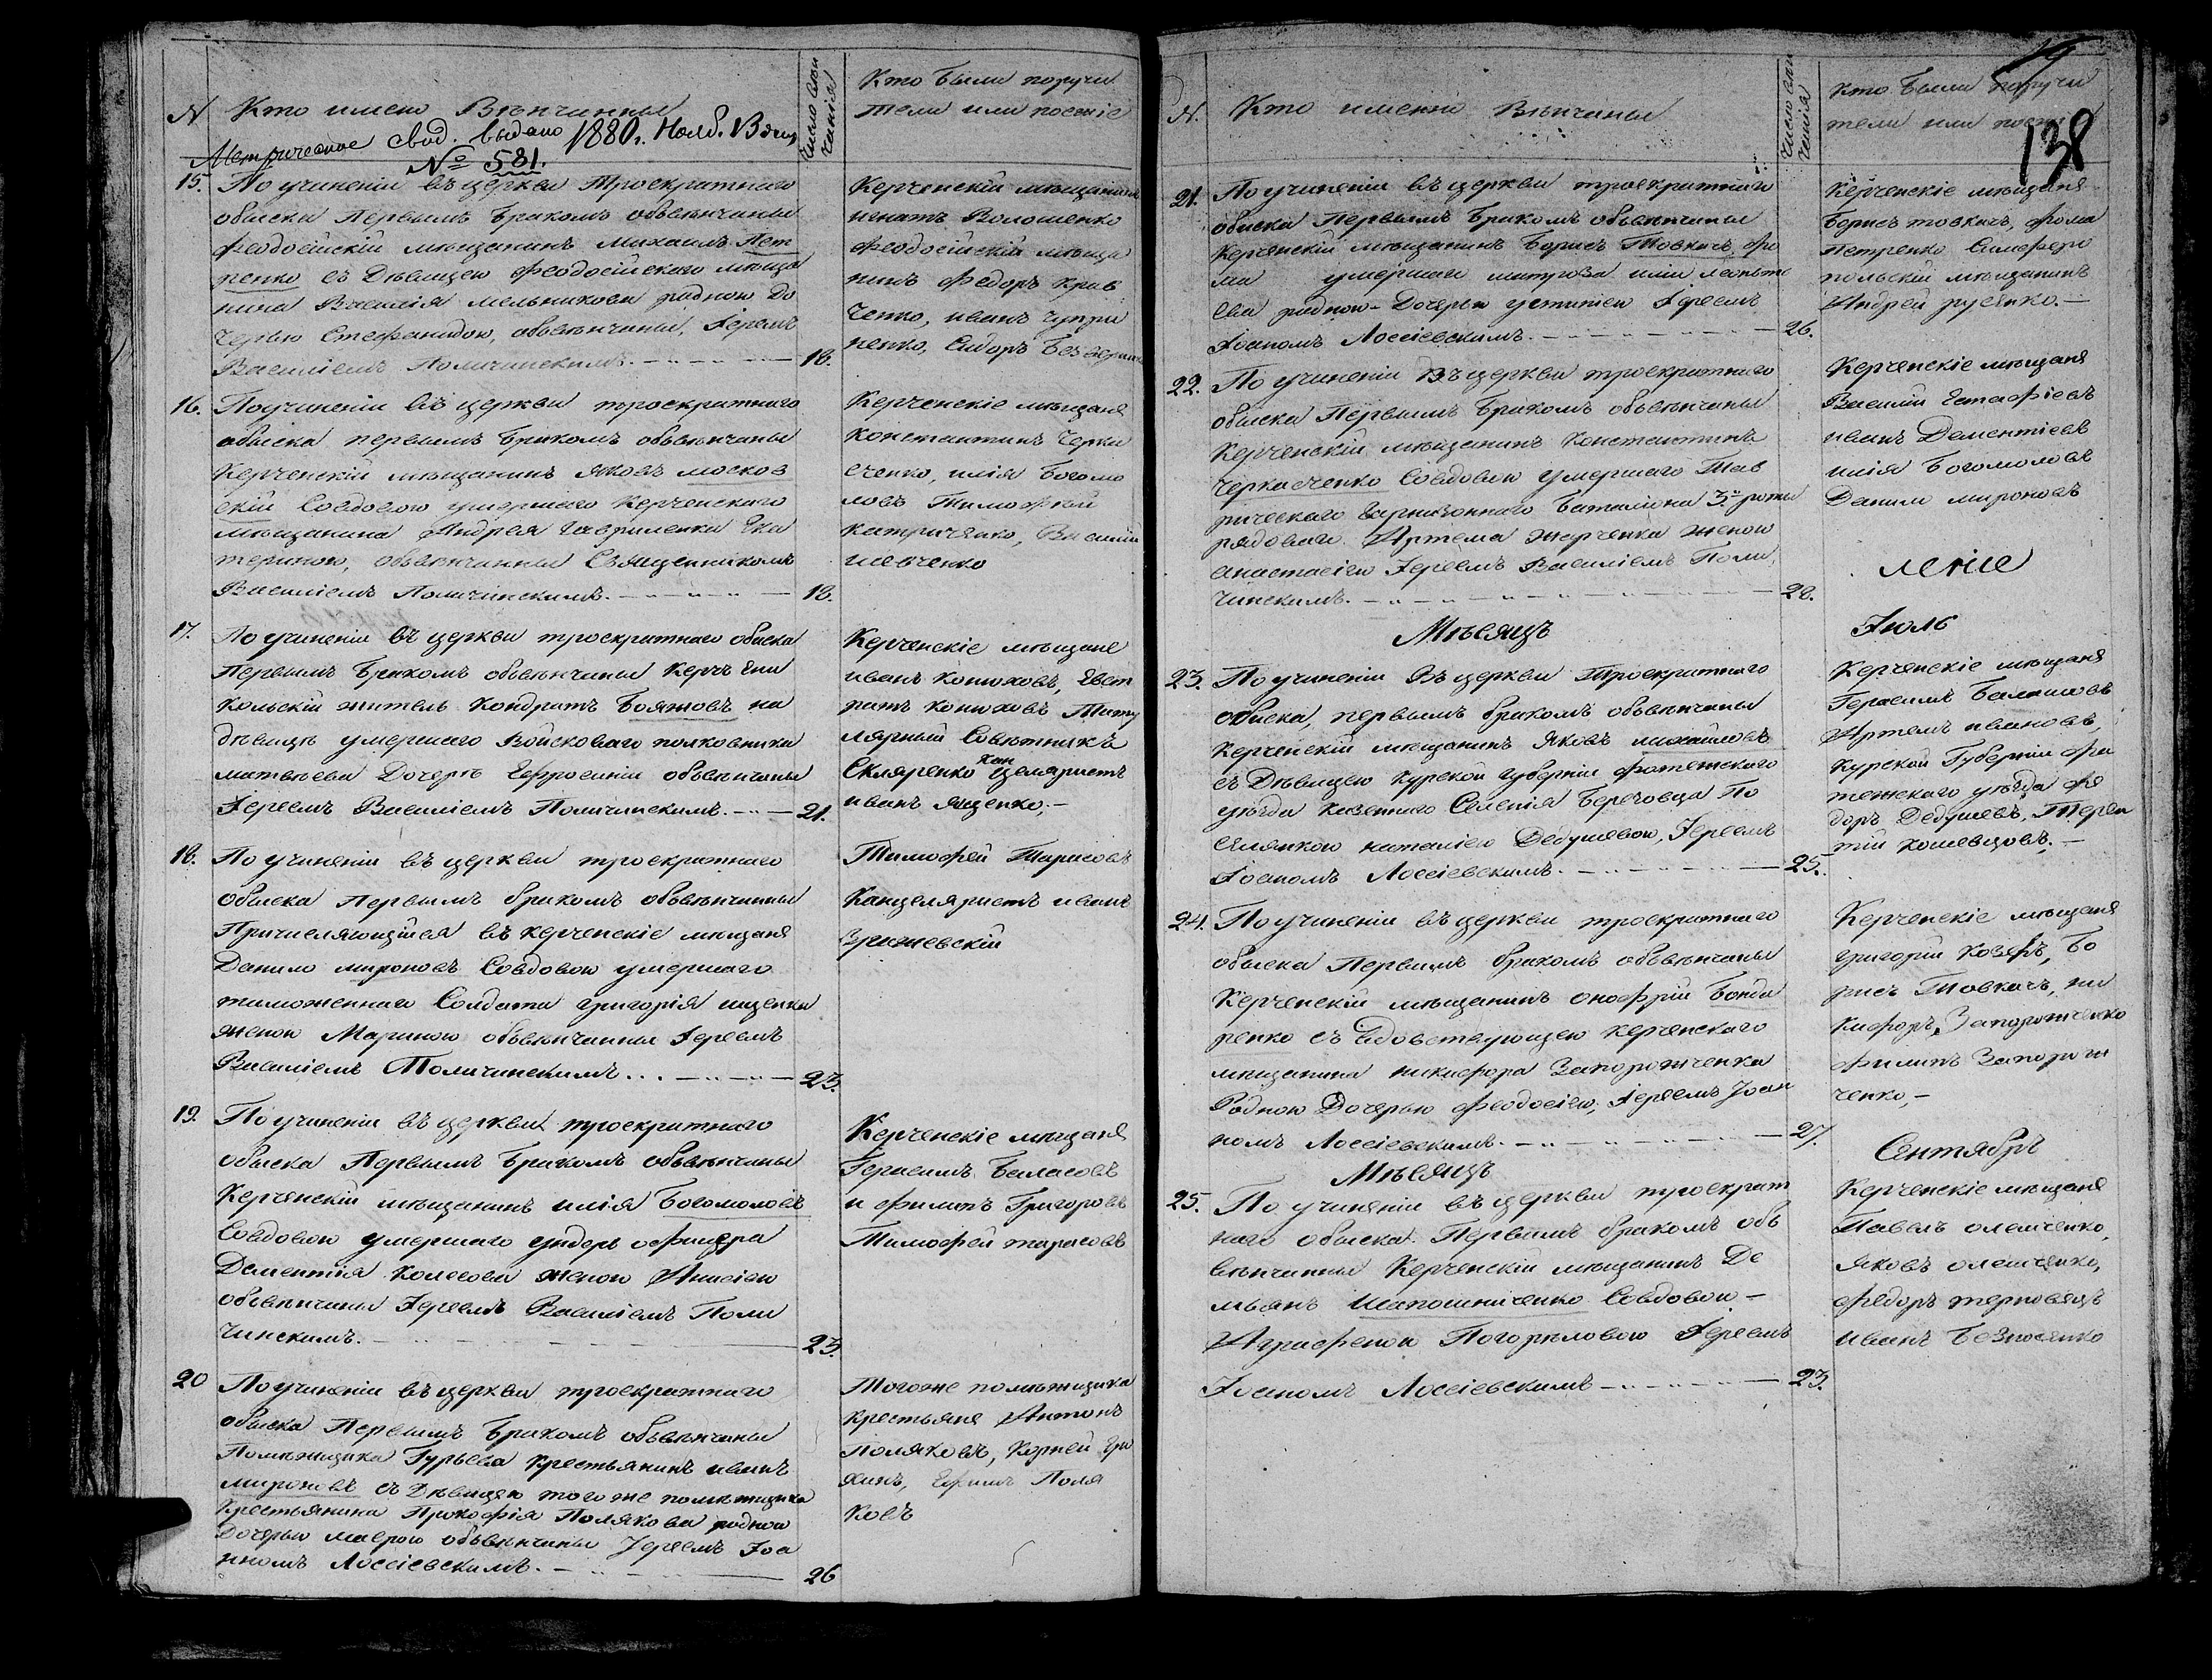 №
Кто имено Вѣнчанны
Число вѣн
чания
Кто были поручи
тели или поезжіе
Метрическое свид. выдано 1880 г. Нояб. 13 дня
№ 581.
15. По учиненіи въ церкви Троекратнаго
обыска Первымъ Бракомъ объвѣнчаны
Феодосійскій мѣщанинъ Михаилъ Пет
ренко съ Дѣвицею Феодосійскаго мѣща
нина Василія Мельникова родною До
черью Стефанидою, объвѣнчаны, Іереемъ
Василіемъ Поличинскимъ. 18.
Керченскій мѣщанинъ
игнатъ Волошенко
Феодосійскій мѣща
нинъ Федоръ Крав
ченко, иванъ Чупри
ненко, Сидоръ
16. По учиненіи въ церкви троекратнаго
обыска первымъ бракомъ объвѣнчаны
Керченскій мѣщанинъ Яковъ Москов
скій Совдовою умершаго Керченскаго
мѣщанина Андрея Гавриленка Ека
териною, объвѣнчанны Священникомъ
Василіемъ Поличинскимъ. 18.
Керченскіе мѣщане
Константинъ Черка
сченко, илія Богомо
ловъ Тимофѣй
Катриченко, Василій
шевченко
17. По учиненіи въ церкви троекратнаго обыска
Первымъ Бракомъ объвѣнчаны Керчь Ени
кольскій житель Кондратъ Бояновъ на
дѣвицѣ умершаго Войсковаго полковника
матвѣева Дочерѣ Ефросиніи объвѣнчаны
Іереемъ Василіемъ Поличинскимъ. 21.
Керченскіе мѣщане
иванъ Конюховъ, Евст
ратъ Конюховъ Титу
лярный Совѣтникъ
Скляренко Канцеляристъ
иванъ Яценко,
18. По учиненіи въ церкви троекратнаго
Обыска Первымъ бракомъ объвѣнчанны
Причисляющійся въ керченскіе мѣщане
Данило мироновъ Совдовою умершаго
таможеннаго Солдата григорія ищенка
женою Мариною объвѣнчанны Іереемъ
Василіемъ Поличинскимъ 23.
Тимофей Тарасовъ
Канцеляристъ иванъ
Вришевскій
19. По учиненіи въ церкви троекратнаго
обыска Первымъ Бракомъ объвѣнчаны
Керченскій мѣщанинъ илія Богомоловъ
Совдовою умершаго ундеръ офицера
Дементія Колесова женою Анисіею
объвѣнчаны Іереемъ Василіемъ Поли
чинскимъ. 23.
Керченскіе мѣщане
Герасимъ Баласовъ
и филипъ Григоровъ
Тимофей тарасовъ
20 По учиненіи въ церкви троекратнаго
обыска Первымъ Бракомъ объвѣнчаны
Помѣщика Гурьева Крестьянинъ иванъ
мироновъ съ Дѣвицею того же помѣщика
Крестьянина Прокофія Полякова родною
Дочерью маврою объвѣнчаны Іереемъ Іоа
нномъ Лоссіевскимъ. 26
Тогоже помѣщика
крестьяне Антонъ
поляковъ, Корней Гри
хинъ, Ефимъ Поля
ковъ
№.
Кто именно Вѣнчаны
Число вѣн
чания
Кто были поручи
тели или поезж
138
21. По учиненіи въ церкви троекратнаго
обыска Первымъ Бракомъ объвѣнчаны
Керченскій мѣщанинъ Борисъ Товкачъ
умершаго
родною Дочерью Іереемъ
Іоаномъ Лоссіевскимъ. 26.
Керченскіе мѣщане
Борисъ товкачъ, фома
Петренко Симферо
польскій мѣщанинъ
Андрей русенко.
22. По учиненіи Въ церкви троекратнаго
обыска Первымъ Бракомъ объвѣнчаны
Керченскій мѣщанинъ Константинъ
Черкасченко Совдовою Умершаго Тав
рическаго Гарнизоннаго Баталіона 3й роты
рядоваго Артема женою
Анастасіею Іереемъ Василіемъ Поли
чинскимъ. 28.
Керченскіе мѣщане
Василій Естафіевъ
иванъ Дементіевъ
илія Богомоловъ
Данило мироновъ
Мѣсяцъ Іюль
23. По учиненіи Въ церкви Троекратнаго
обыска, первымъ бракомъ объвѣнчаны
Керченскій мѣщанинъ Яковъ михайловъ
съ Дѣвицею Курской губерніи Фатежскаго
уѣзда казеннаго Селенія Береговца По
селянкою наталіею Дедушевою, Іереемъ
Іоаномъ Лоссіевскимъ. 25.
Керченскіе мѣщане
Герасимъ Баласовъ
Артемъ ивановъ,
Курской Губерніи Фа
тежскаго уѣзда Фе
доръ Дедушевъ, Терен
тій кошевцовъ.
24. По учиненіи въ церкви троекратнаго
обыска Первымъ бракомъ объвѣнчаны
Керченскій мѣщанинъ онофрій Бонда
ренко съ вдовствующею керченскаго
мѣщанина никифора Запорожченка
Родною Дочерью Феодосіею, Іереемъ Іоан
номъ Лоссіевскимъ. 27.
Керченскіе мѣщане
григорій Козефъ, Бо
рисъ Товкачъ, ни
кифоръ Запорожченко
филипъ Запорож
ченко,
Мѣсяцъ Сентябрь
25. По учиненіи въ церкви троекрат
наго обыска Первымъ бракомъ объ
вѣнчанны Керченскій мѣщанинъ Де
мьянъ Шапошниченко Совдовою
Аграфеною Погорѣловою Іереемъ
Іоаномъ Лоссіевскимъ 23.
Керченскіе мѣщане
Павелъ олейченко,
Яковъ олейченко,
федоръ терновецъ
иванъ Безносенко